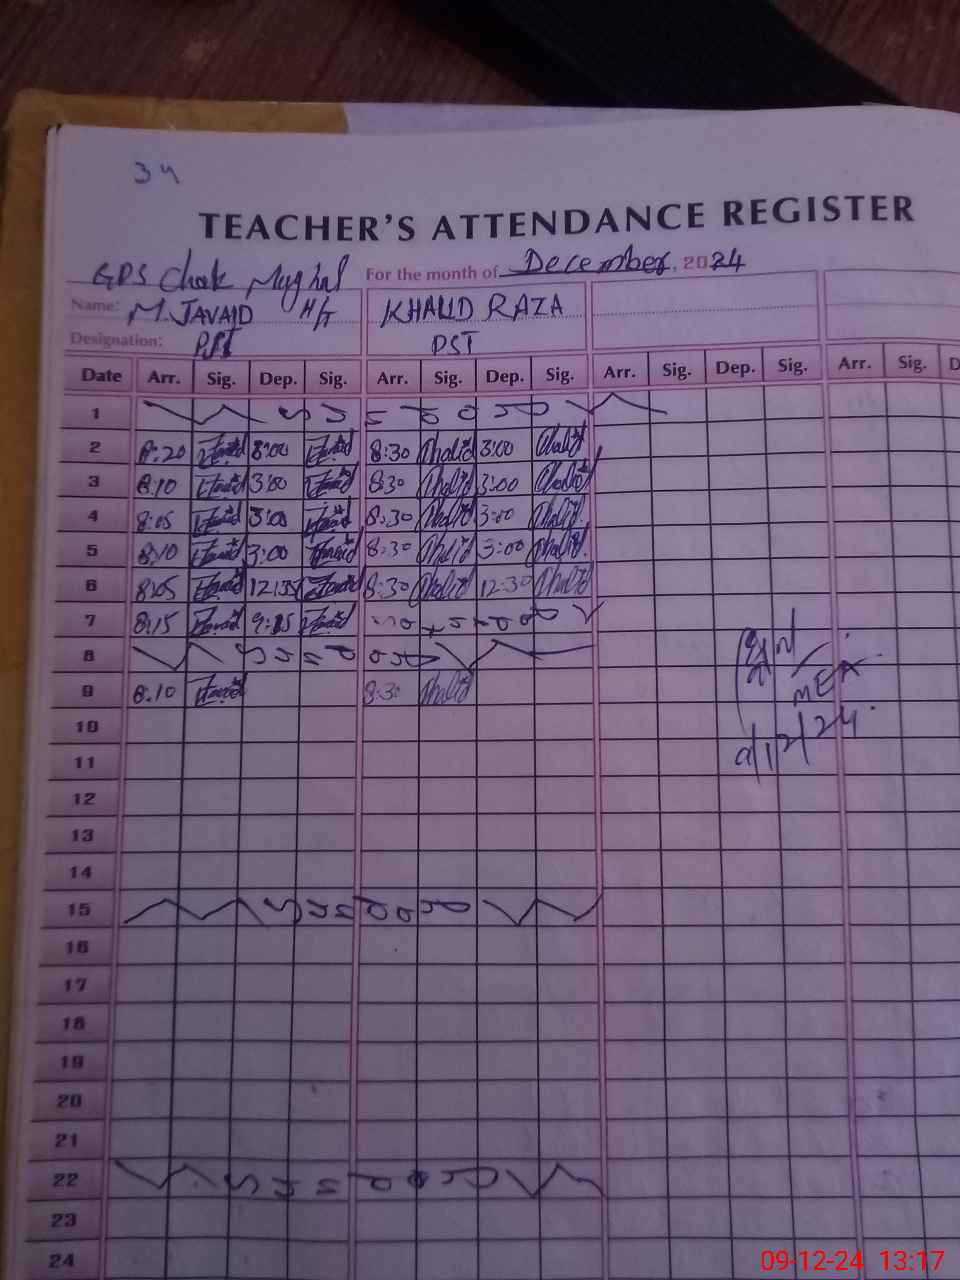 34
TEACHER'S ATTENDANCE REGISTER
GPS Chak Mughal For the month of December, 2024
Name: M. JAVAID H/T KHALID RAZA
Designation: PST PST
Date Arr. Sig. Dep. Sig. Arr. Sig. Dep. Sig. Arr. Sig. Dep. Sig. Arr. Sig. D
1 Sunday
2 8:20 3:00 8:30 Khalid 3:00 Khalid
3 8:10 3:00 8:30 Khalid 3:00 Khalid
4 8:05 3:00 8:30 Khalid 3:00 Khalid
5 8:10 3:00 8:30 Khalid 3:00 Khalid
6 8:05 12:35 8:30 Khalid 12:30 Khalid
7 8:15
8 Sunday
9 8:10 8:30 Khalid
MEA
10
9/12/24
11
12
13
14
15 Sunday
16
17
18
19
20
21
22 Sunday
23
24
09-12-24 13:17